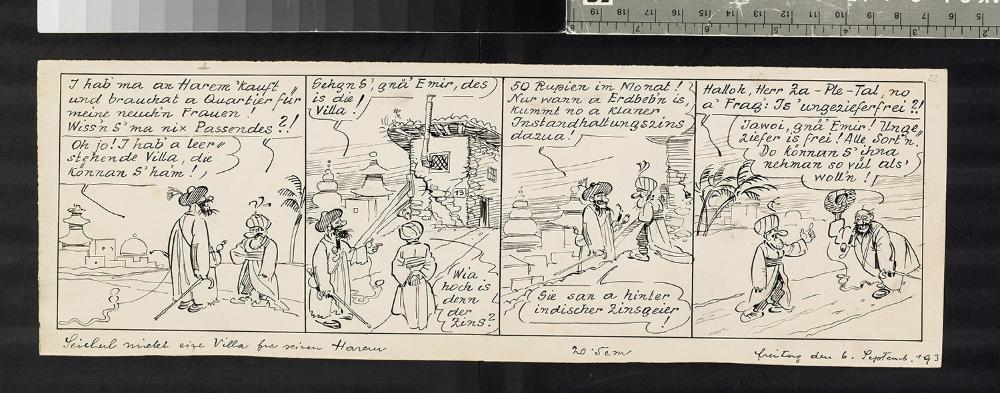 I hab' ma an Harem 'kauft
und brauchat a Quartier für
meine neuch'n Frauen!
Wiss'n S' ma nix Passendes?!
Oh jo! I hab' a leer
stehende Villa, die
können S' ham!
Sehgn S', gnä' Emir, des
is die
Villa!
73
Wia
hoch is
denn
der
Zins?
50 Rupien im Monat!
Nur wann a Erdbeb'n is,
kummt no a klaner
Instandhaltungszins
dazua!
Sie san a hinter
indischer Zinsgeier
!
Halloh, Herr Za-Ple-Tal, no
a' Frag: Is' ungezieferfrei?!
Jawoi, gnä' Emir! Unge
ziefer is frei! Alle Sort'n.
Do können S' ihna
nehman so vül als'
woll'n!
22
Seicherl mietet eine Villa für seinen Harem
20·5cm
Freitag den 6. Septemb. 193